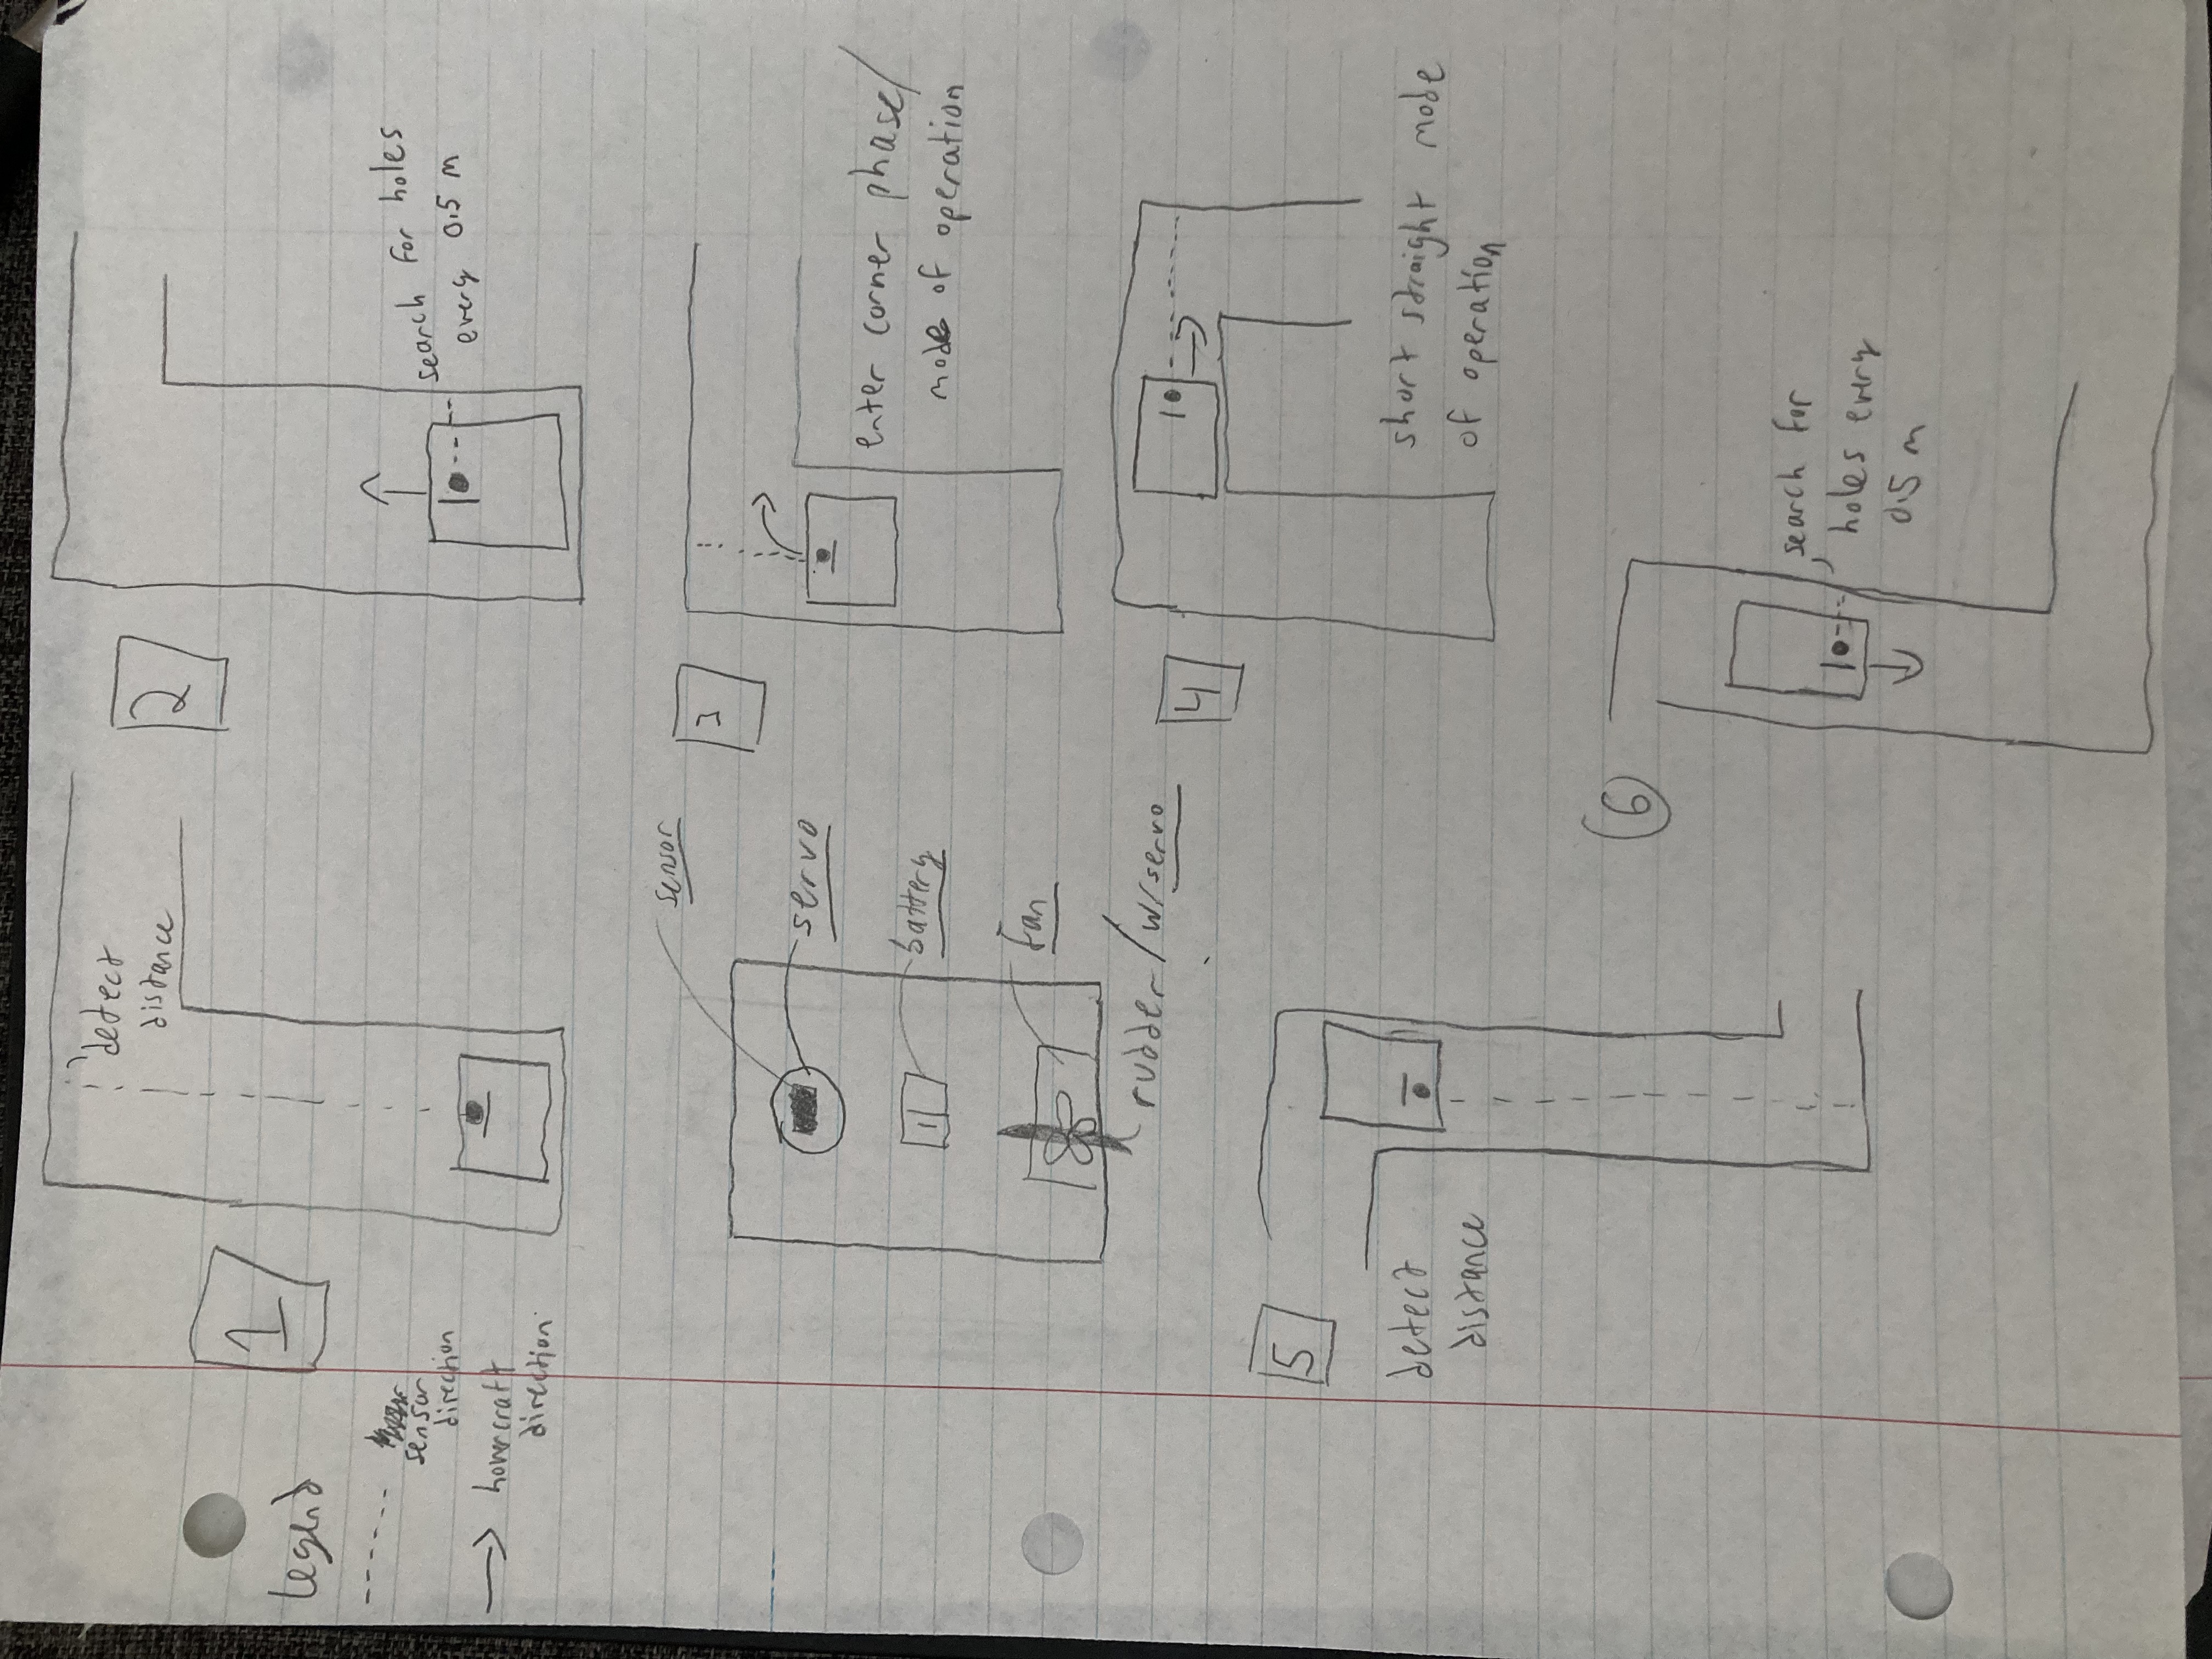 1
detect
distance
2
Legend
sensor
direction
hovercraft
direction
search for holes
every 0.5 m
sensor
servo
battery
fan
rudder/w/servo
3
enter corner phase/
mode of operation
4
short straight mode
of operation
5
detect
distance
6
search for
holes every
0.5 m